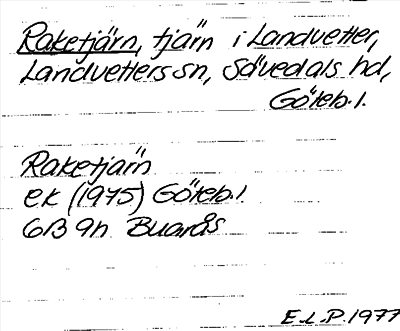 Raketjärn, tjärn i Landvetter,
Landvetters sn, Sävedals hd,
Göteb. l.
Raketjärn
ek (1975) Göteb. l.
6B 9h Buarås
E.L.P. 1977